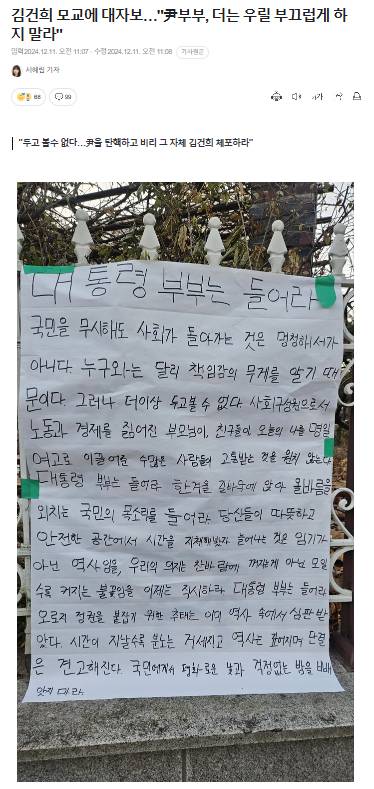 김건희 모교에 대자보…"尹부부, 더는 우릴 부끄럽게 하
지 말라"
입력2024.12.11. 오전 11:07 · 수정2024.12.11. 오전 11:08 기사원문
서혜림 기자
68 99
가가
"두고 볼수 없다…尹을 탄핵하고 비리 그 자체 김건희 체포하라"
대통령 부부는 들어라
국민을 무시해도 사회가 돌아가는 것은 멍청해서가
아니다. 누구와는 달리 책임감의 무게를 알기 때
문이다. 그러나 더이상 두고볼 수 없다. 사회구성원으로서
노동과 경제를 짊어진 부모님이, 친구들이, 오늘의 나를 명일
여고로 이끌어준 수많은 사람들이 고통받는 것을 원치 않는다
대통령 부부는 들어라. 한겨울 길바닥에 앉아 올바름을
외치는 국민의 목소리를 들어라. 당신들이 따뜻하고
안전한 공간에서 시간을 지체해봤자 늘어나는 것은 임기가
아닌 역사임을, 우리의 의지는 찬바람에 꺼지는게 아닌 모일
수록 커지는 불꽃임을 이제는 직시하라. 대통령 부부는 들어라
오로지 정권을 붙잡기 위한 추태는 이미 역사 속에서 심판 받
았다. 시간이 지날수록 분노는 거세지고 역사는 깊어지며 단결
은 견고해진다. 국민에게서 평화로운 낮과 걱정없는 밤을 빼앗
지 마라.